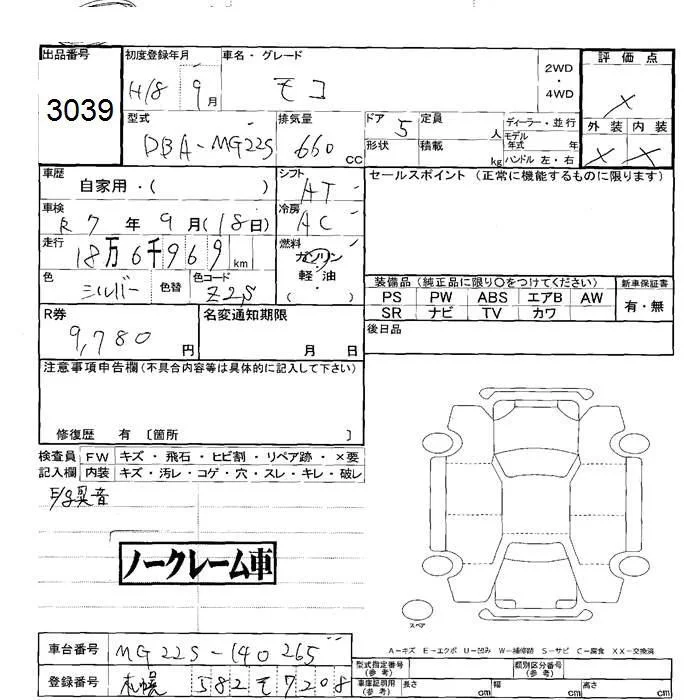 出品番号
3039
初度登録年月
H18 9月
車名・グレード
モコ
2WD
・
4WD
評価点
X
外装 内装
X X
型式
DBA-MG22S
排気量
660 CC
ドア 5
形状
定員 人
積載 kg
ディーラー・並行
モデル年式 年
ハンドル 左・右
車歴
自家用・( )
シフト AT
セールスポイント(正常に機能するものに限ります)
車検
R7年9月(18日)
冷房 AC
走行
18万6千969km
燃料
ガソリン
軽油
( )
色
シルバー
色替
色コード
Z2S
装備品(純正品に限り○をつけてください)
新車保証書
PS PW ABS エアB AW
SR ナビ TV カワ
有・無
R券
9,780円
名変通知期限
月 日
後日品
注意事項申告欄(不具合内容等は具体的に記入して下さい)
修復歴 有 〔箇所 〕
検査員 FW キズ・飛石・ヒビ割・リペア跡・×要
記入欄 内装 キズ・汚レ・コゲ・穴・スレ・キレ・破レ
E/g異音
ノークレーム車
スペア
A-キズ E-エクボ U-凹み W-補修跡 S-サビ C-腐食 XX-交換済
車台番号 MG22S-140265
登録番号 札幌 582 モ 7208
型式指定番号(参考)
類別区分番号(参考)
車庫証明用(参考) 長さ cm 幅 cm 高さ cm